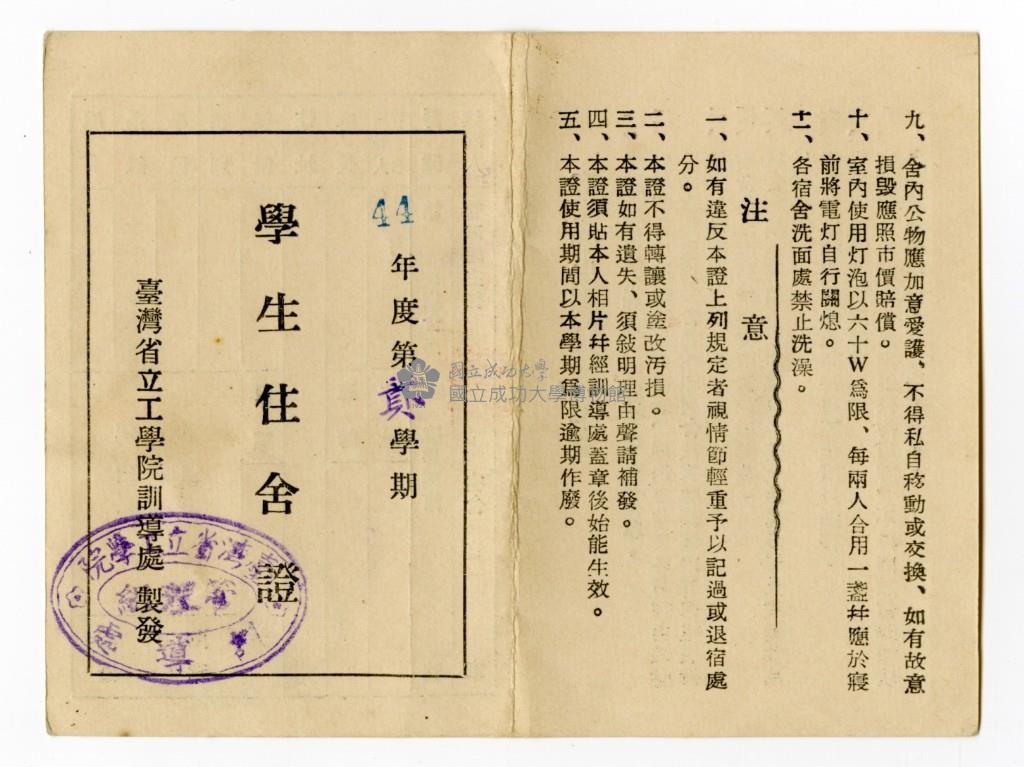 九、舍內公物應加意愛護、不得私自移動或交換、如有故意
損毀應照市價賠償。
十、室內使用灯泡以六十W爲限、每兩人合用一盞幷應於寢
前將電灯自行關熄。
十一、各宿舍洗面處禁止洗澡。
注意
一、如有違反本證上列規定者視情節輕重予以記過或退宿處
分。
二、本證不得轉讓或塗改汚損。
三、本證如有遺失、須敍明理由聲請補發。
四、本證須貼本人相片幷經訓導處蓋章後始能生效。
五、本證使用期間以本學期爲限逾期作廢。
44年度第貳學期
學生住舍證
臺灣省立工學院訓導處 製發
國立成功大學
國立成功大學博物館